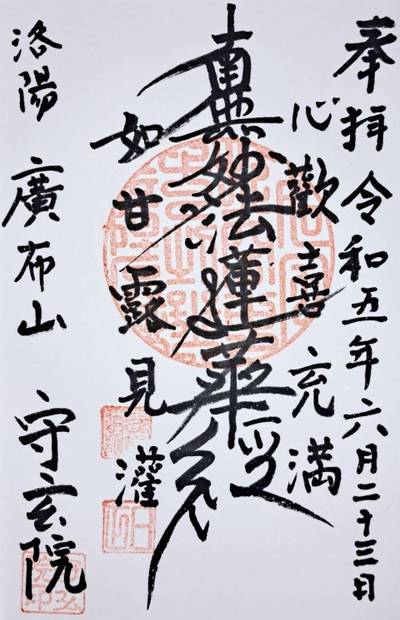 奉拝 令和五年六月二十三日
心歓喜充満
南無妙法蓮華経
如甘露見灌
洛陽 廣布山 守玄院